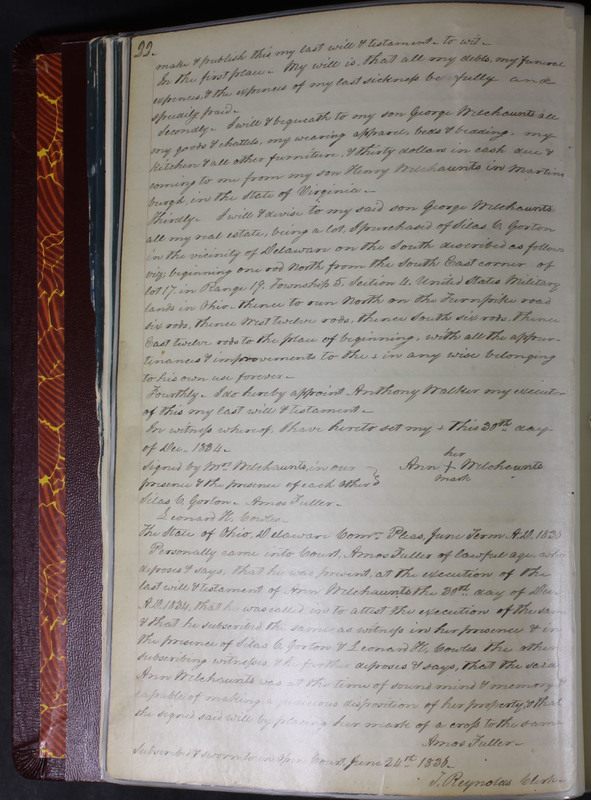 22.
make & publish this my last will & testament - to wit -
In the first place - My will is, that all my debts, my funeral
expences, & the expences of my last sickness be fully and
speedily paid -
Secondly - I will & bequeath to my son George Welchaunts all
my goods & chattels, my wearing apparel, beds & bedding, my
kitchen & all other furniture, & thirty dollars in cash due &
coming to me from my son Henry Welchaunts in Martins
burgh, in the State of Virginia -
Thirdly - I will & devise to my said son George Welchaunts
all my real estate, being a lot, I purchased of Silas C. Gorton
in the vicinity of Delaware on the South described as follows
viz; beginning one rod North from the South East corner of
lot 17 in Range 19, Township 5, Section 4, United States Military
lands in Ohio - thence to run North on the Turnpike road
six rods, thence West twelve rods, thence South six rods, thence
East twelve rods to the place of beginning, with all the appur-
tinances & improvements to the & in any wise belonging
to his own use forever -
Fourthly - I do hereby appoint Anthony Walker my executor
of this my last will & testament -
In witness whereof, I have hereto set my & this 30th day
of Dec. 1834 -
her
Signed by Mrs Welchaunts, in our } Ann + Welchaunts
presence & the presence of each other mark
Silas C. Gorton - Amos Fuller -
Leonard H. Cowles -
The State of Ohio, Delaware Com. Pleas, June Term A.D. 1836
Personally came into Court, Amos Fuller of lawful age, who
deposes & says, that he was present, at the execution of the
last will & testament of Ann Welchaunts the 30th day of Dec.
A.D. 1834, that he was called in to attest the execution of the same
& that he subscribed the same as witness in her presence & in
the presence of Silas C. Gorton & Leonard H. Cowles the other
subscribing witnesses, & he further deposes & says, that the said
Ann Welchaunts was at the time of sound mind & memory &
capable of making a judicious disposition of her property, & that
she signed said will by placing her mark of a cross to the same
Amos Fuller -
Subscribed & sworn to in Open Court June 24th 1836.
T. Reynolds Clerk -